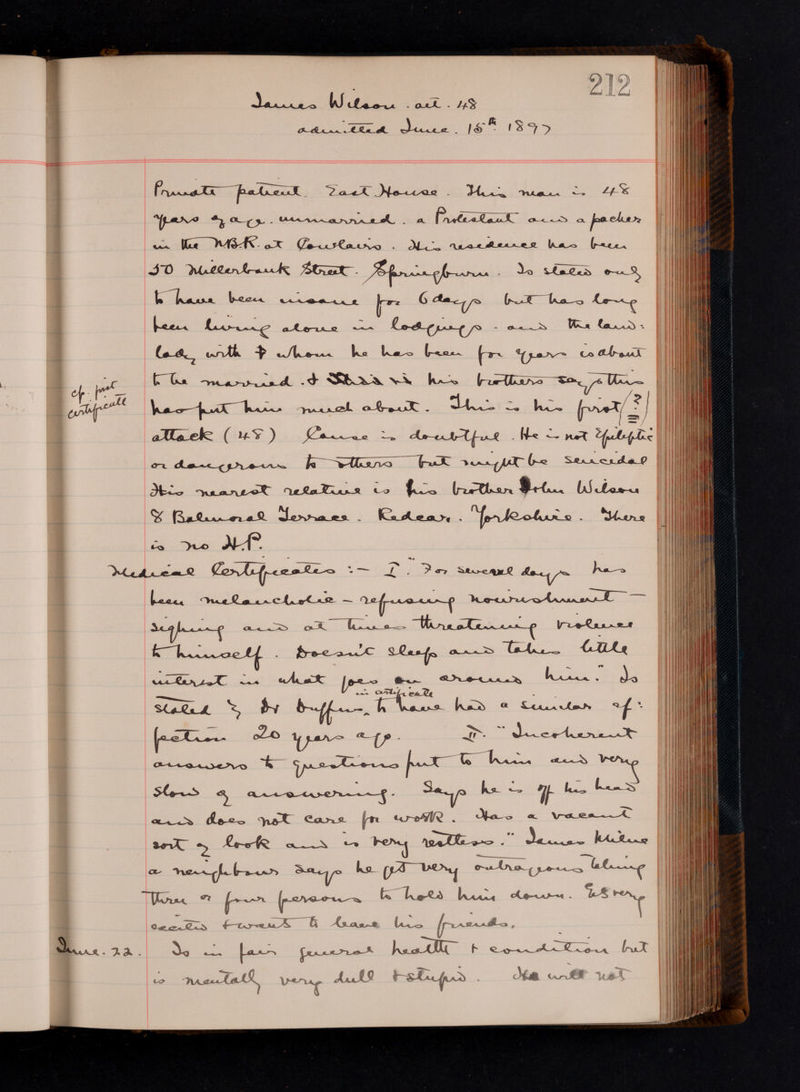 212
James Wilson . aet . 48
admitted June . 15th 1897
Private patient East House . This man is 48
years of age . unmarried . a Protestant and a packer
in the N.B.R. at Cowlairs . His residence has been
50 Millerbank Street . Springburn . Is stated only
to have been insane for 6 days but has long
been living alone in lodgings . and the land:
lady with whom he has been for years is about
to be married . & his brothers say this
cf. first
certificate
has put him much about . This is his first [?]
attack ( 48 ) Cause is doubtful . He is not Epileptic
or dangerous to others but might be suicidal
His nearest relative is his brother John Wilson
8 Balmoral Terrace . Redcar . Yorkshire . There
is no H.P.
Medical Certificates :- I . For several days has
been melancholic - refusing nourishment -
sighing and at times threatening violence
to himself . Doesn't sleep and takes little
interest in what goes on around him." Is
in certificate
stated by Dr Duffus to have had a similar af:
fection 20 years ago . II. "Incoherent
answers to questions put to him and very
slow of answering . Says he is off his head
and does not care for work . Has a vacant
sort of look and is very restless ." James Milne
a neighbour says he got very outrageous taking
three or four persons to hold him down . Is very
excited & wants to leave his friends .
June . 22 . Is in fair general health & condition but
is mentally very dull & stupid . He will not